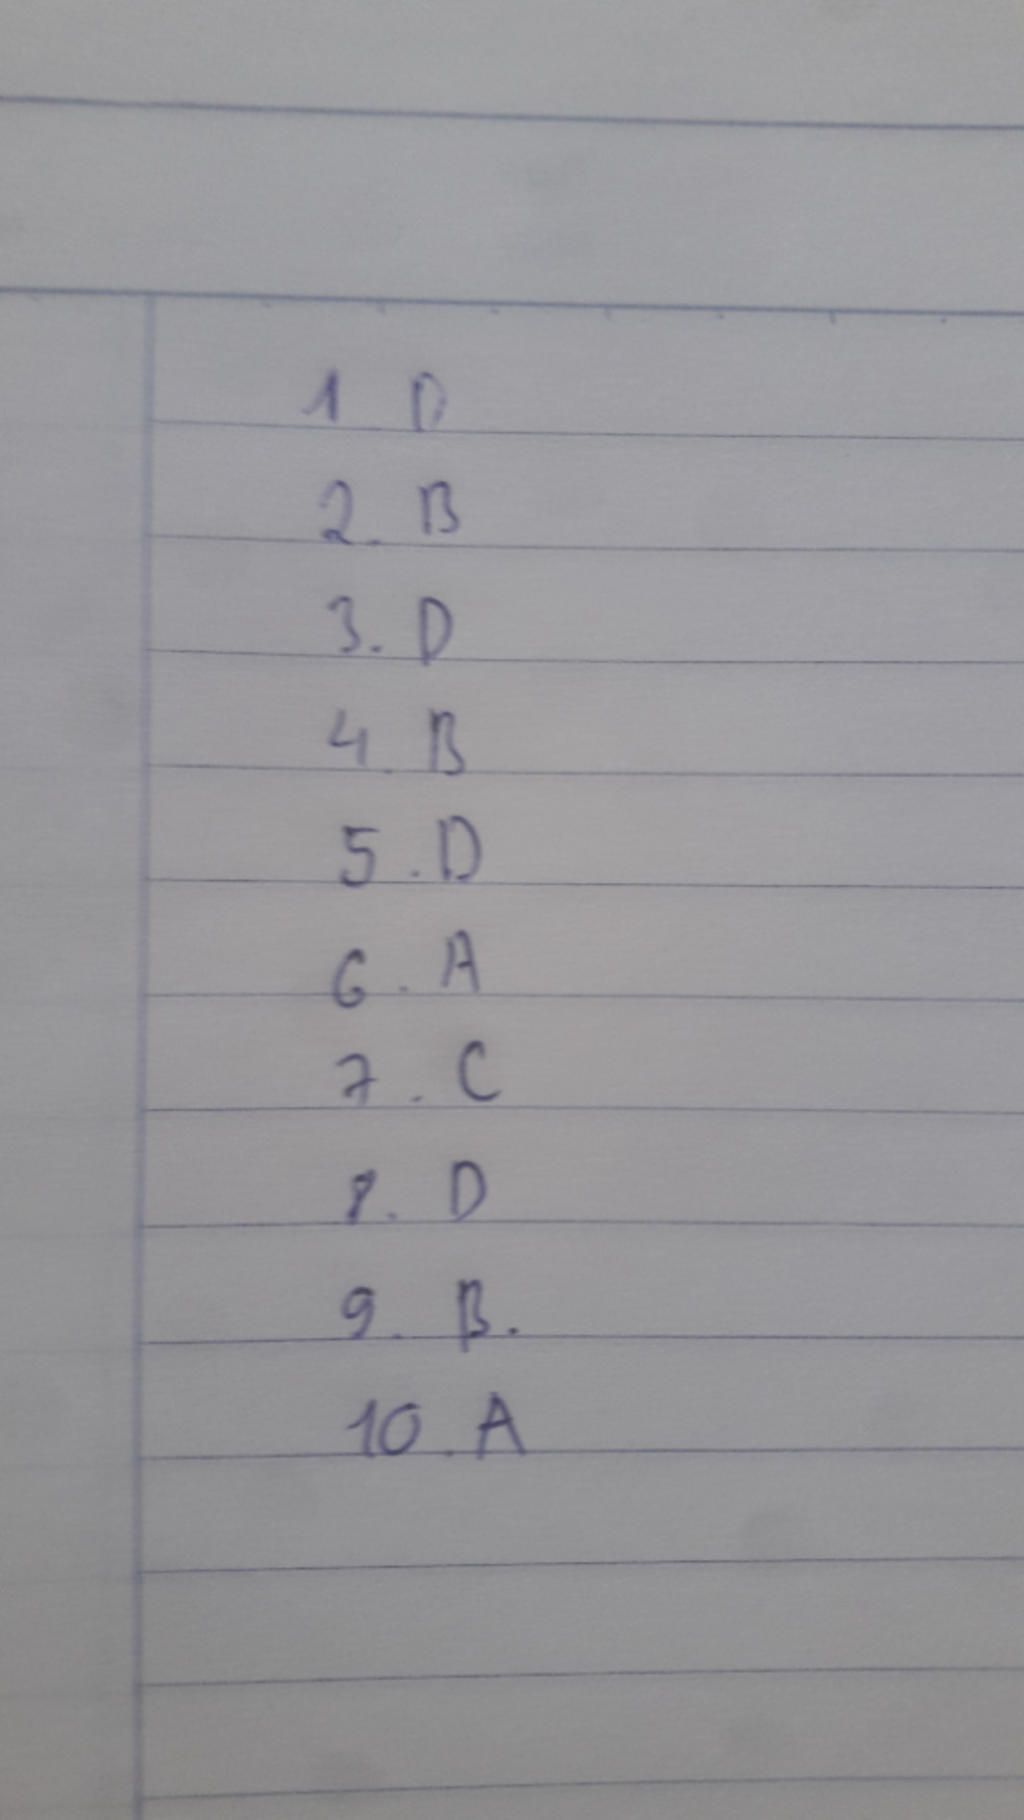 1 D
2. B
3. D
4. B
5. D
6. A
7. C
8. D
9. B.
10. A